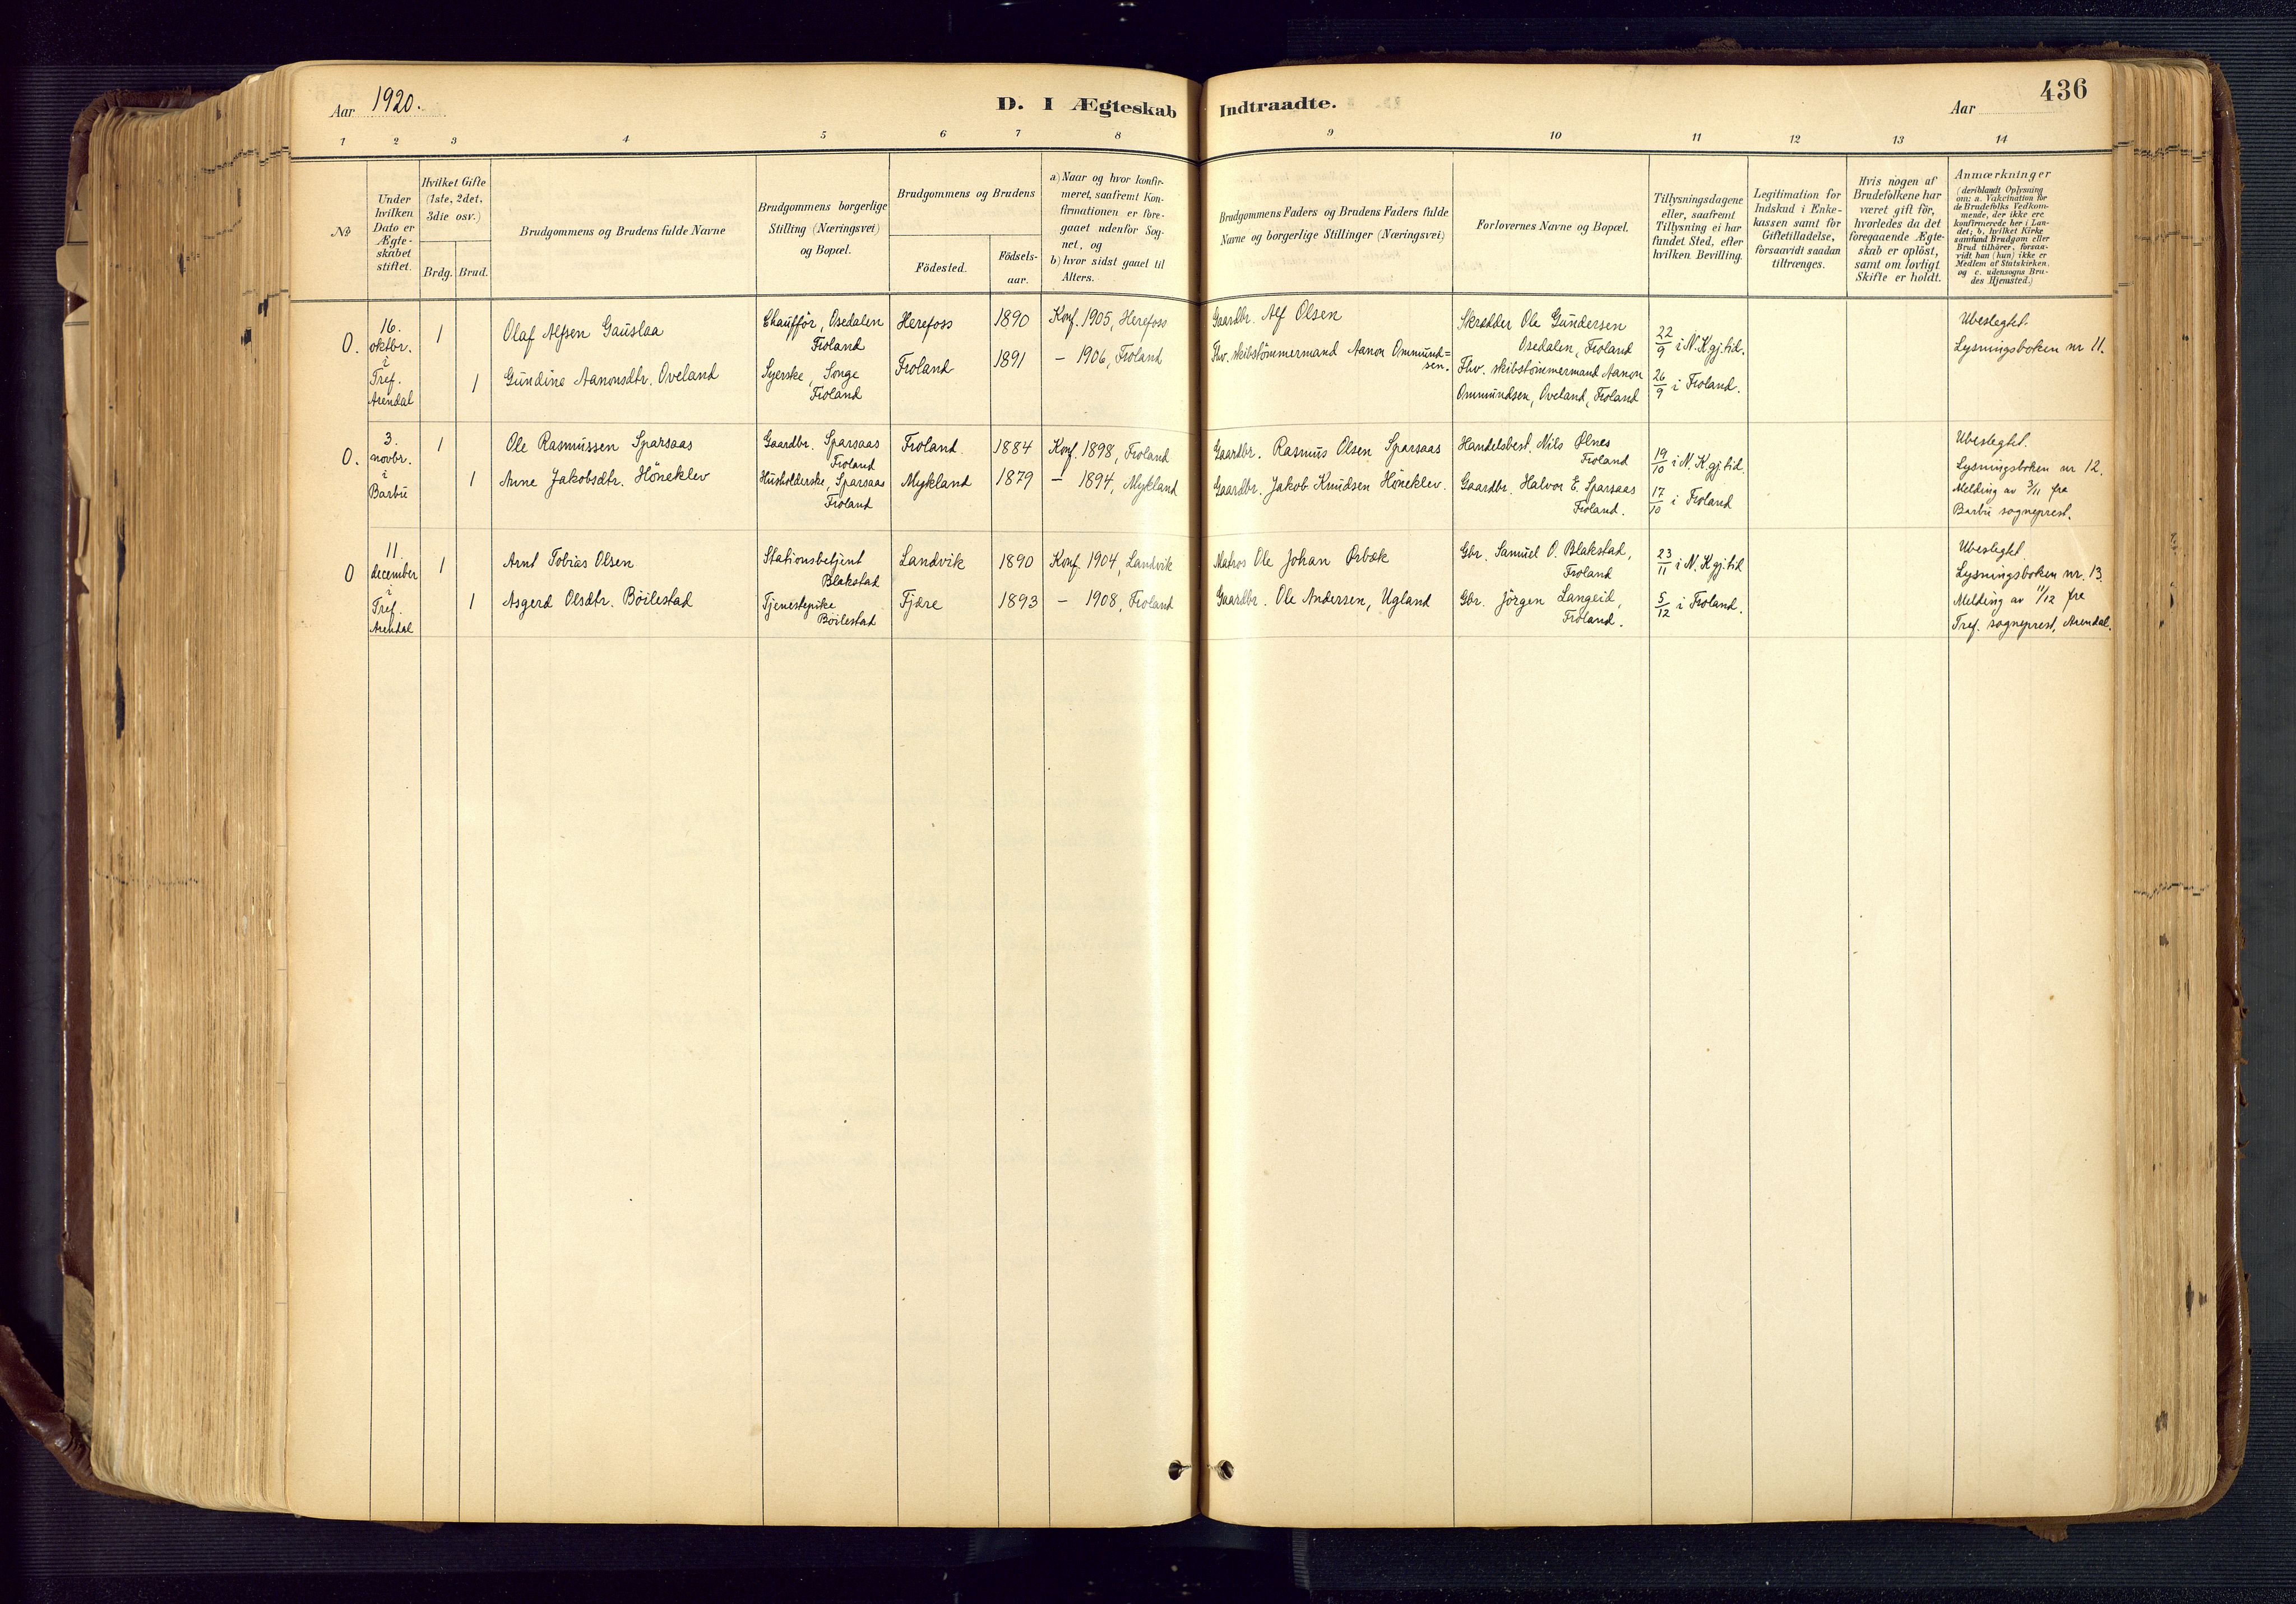 Aar 1920.
D. I Ægteskab Indtraadte.
Aar
436
1 2 3 4 5 6 7 8 9 10 11 12 13 14
No
Under
hvilken
Dato er
Ægte-
skabet
stiftet.
Hvilket Gifte
(1ste, 2det,
3die osv.)
Brdg. Brud.
Brudgommens og Brudens fulde Navne
Brudgommens borgerlige
Stilling (Næringsvei)
og Bopæl.
Brudgommens og Brudens
Födested.
Födsels-
aar.
a) Naar og hvor konfir-
meret, saafremt Kon-
firmationen er fore-
gaaet udenfor Sog-
net, og
b) hvor sidst gaaet til
Alters.
Brudgommens Faders og Brudens Faders fulde
Navne og borgerlige Stillinger (Næringsvei)
Forlovernes Navne og Bopæl.
Tillysningsdagene
eller, saafremt
Tillysning ei har
fundet Sted, efter
hvilken Bevilling.
Legitimation for
Indskud i Enke-
kassen samt for
Giftetilladelse,
forsaavidt saadan
tiltrænges.
Hvis nogen af
Brudefolkene har
været gift för,
hvorledes da det
foregaaende Ægte-
skab er oplöst,
samt om lovligt
Skifte er holdt.
Anmærkninger
(deriblandt Oplysning
om: a. Vakcination for
de Brudefolks Vedkom-
mende, der ikke ere
konfirmerede her i Lan-
det; b. hvilket Kirke
samfund Brudgom eller
Brud tilhörer, forsaa-
vidt han (hun) ikke er
Medlem af Statskirken,
og c. udensogns Bru-
des Hjemsted.)
O.
16.
oktbr.
i
Tref.
Arendal
1
1
Olaf Alfsen Gauslaa
Gundine Aanonsdtr. Oveland
Chaufför, Osedalen
Froland
Syerske, Songe
Froland
Herefoss
Froland
1890
1891
Konf. 1905, Herefoss
— 1906, Froland
Gaardbr. Alf Olsen
Fhv. skibstömmermand Aanon Ommund=
sen.
Skrædder Ole Gundersen
Osedalen, Froland
Fhv. skibstömmermand Aanon
Ommundsen, Oveland, Froland
22/9 i N. K. gj. tid.
26/9 i Froland.
Ubeslegtet.
Lysningsboken nr 11.
O.
3.
novbr.
i
Barbu
1
1
Ole Rasmussen Sparsaas
Anne Jakobsdtr. Höneklev
Gaardbr. Sparsaas
Froland
Husholderske, Sparsaas
Froland
Froland.
Mykland
1884
1879
Konf. 1898, Froland
— 1894, Mykland
Gaardbr. Rasmus Olsen Sparsaas
Gaardbr. Jakob Knudsen Höneklev.
Handelsbest. Nils Ølnes
Froland
Gaardbr. Halvor E. Sparsaas
Froland.
19/10 i N. K. gj. tid.
17/10 i Froland
Ubeslegtet.
Lysningsboken nr 12.
Melding av 3/11 fra
Barbu sogneprest.
O
11.
december
i
Tref.
Arendal
1
1
Arnt Tobias Olsen
Asgerd Olsdtr. Böilestad
Stationsbetjent
Blakstad
Tjenestepike
Böilestad
Landvik
Fjære
1890
1893
Konf. 1904, Landvik
— 1908, Froland
Matros Ole Johan Ørbæk
Gaardbr. Ole Andersen, Ugland
Gbr. Samuel O. Blakstad,
Froland
Gbr. Jörgen Langeid,
Froland.
23/11 i N. K. gj. tid
5/12 i Froland.
Ubeslegtet.
Lysningsboken nr. 13.
Melding av 11/12 fra
Tref. sogneprest, Arendal.